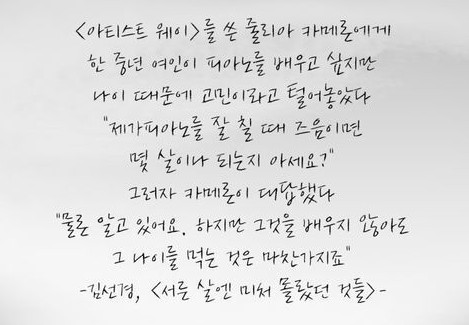 <아티스트 웨이>를 쓴 줄리아 카메론에게
한 중년 여인이 피아노를 배우고 싶지만
나이 때문에 고민이라고 털어놓았다
"제가피아노를 잘 칠 때 즈음이면
몇 살이나 되는지 아세요?"
그러자 카메론이 대답했다
"물론 알고 있어요. 하지만 그것을 배우지 않아도
그 나이를 먹는 것은 마찬가지죠"
-김선경, <서른 살엔 미처 몰랐던 것들>-